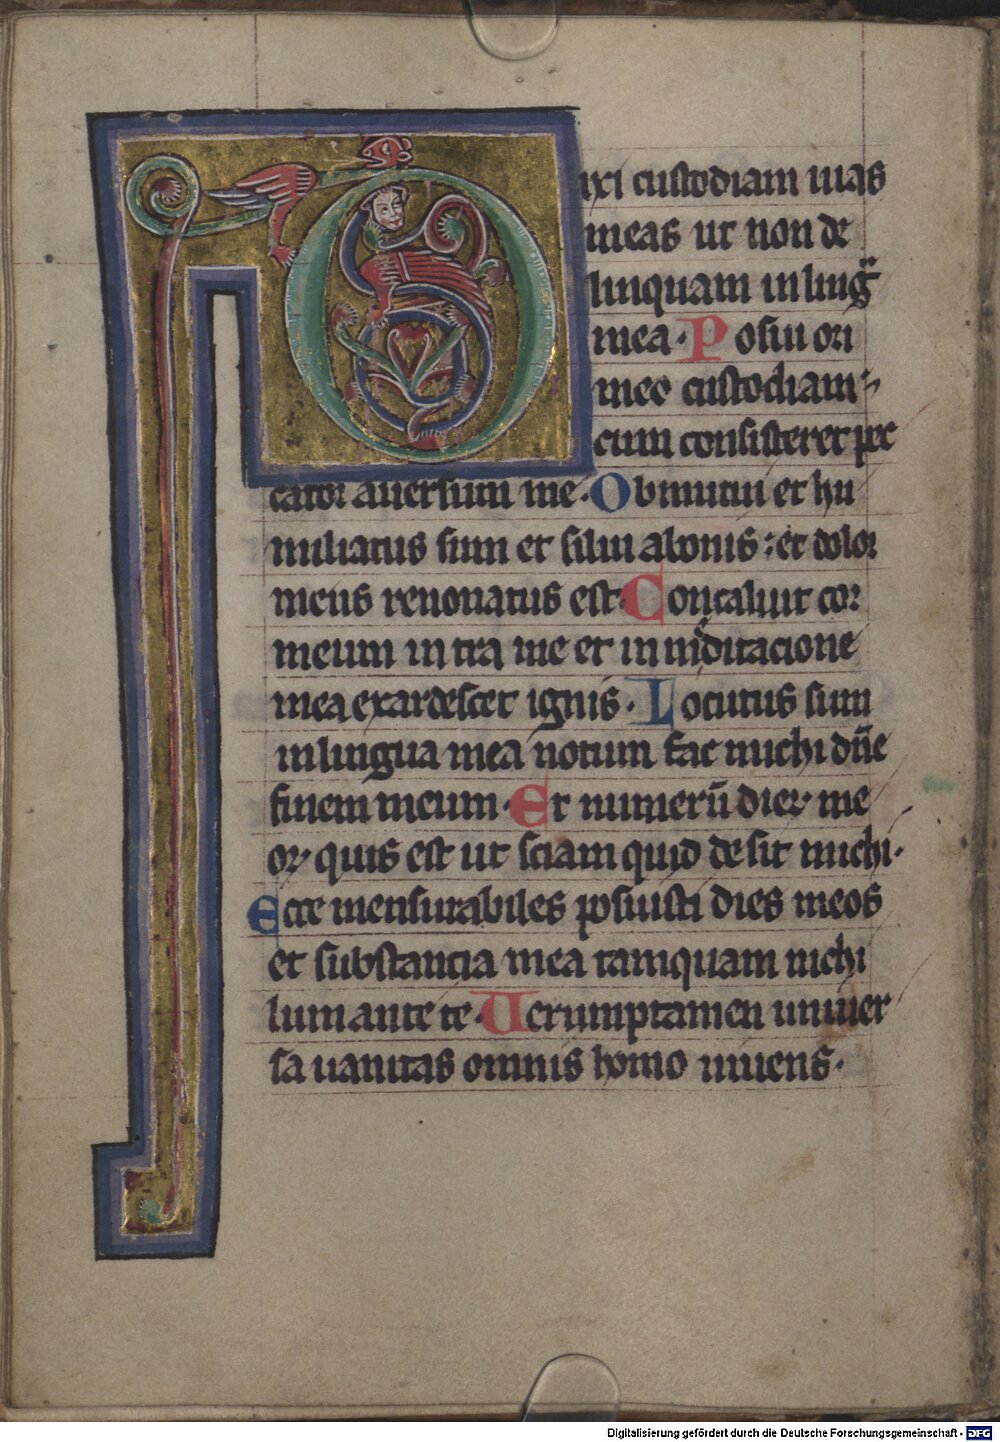 Dixi custodiam uias
meas ut non de
linquam in ling̃
mea. Posui ori
meo custodiam:
cum consisteret pec
cator aduersum me. Obmutui et hu
miliatus sum et silui a bonis: et dolor
meus renouatus est. Concaluit cor
meum intra me et in meditacione
mea exardescet ignis. Locutus sum
in lingua mea notum fac michi dñe
finem meum. Et numerũ dieꝝ me
oꝝ quis est ut sciam quid desit michi.
Ecce mensurabiles posuisti dies meos
et substancia mea tamquam nichi
lum ante te. Uerumptamen uniuer
sa uanitas omnis homo uiuens.
Digitalisierung gefördert durch die Deutsche Forschungsgemeinschaft - DFG